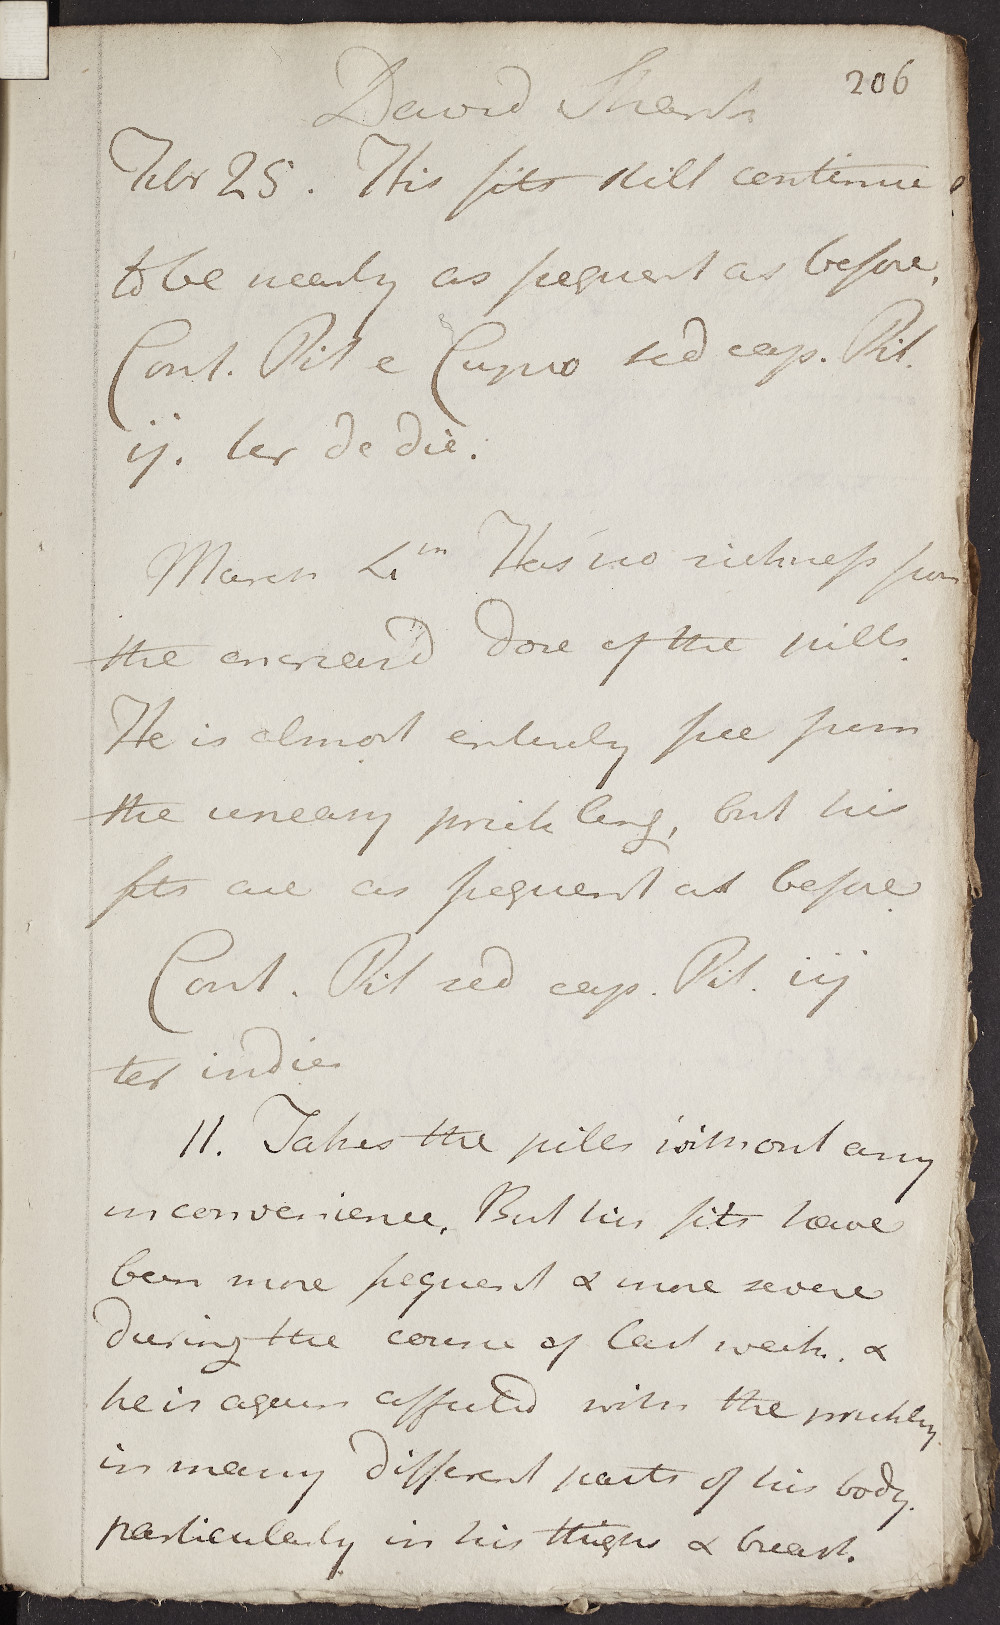 206
David
Febr 25. His fits still continue
to be nearly as frequent as before.
Cont. Pil e Cupro sed cap. Pil.
ij. ter de die.
March 4th Has no sickness from
the encreas'd dose of the pills.
He is almost entirely free from
the uneasy prickling, but his
fits are as frequent as before
Cont. Pil sed cap. Pil. iij
ter indies
11. Takes the pills without any
inconvenience. But his fits have
been more frequent & more severe
during the course of last week. &
he is again affected with the prickling
in many different parts of his body.
particularly in his thighs & breast.